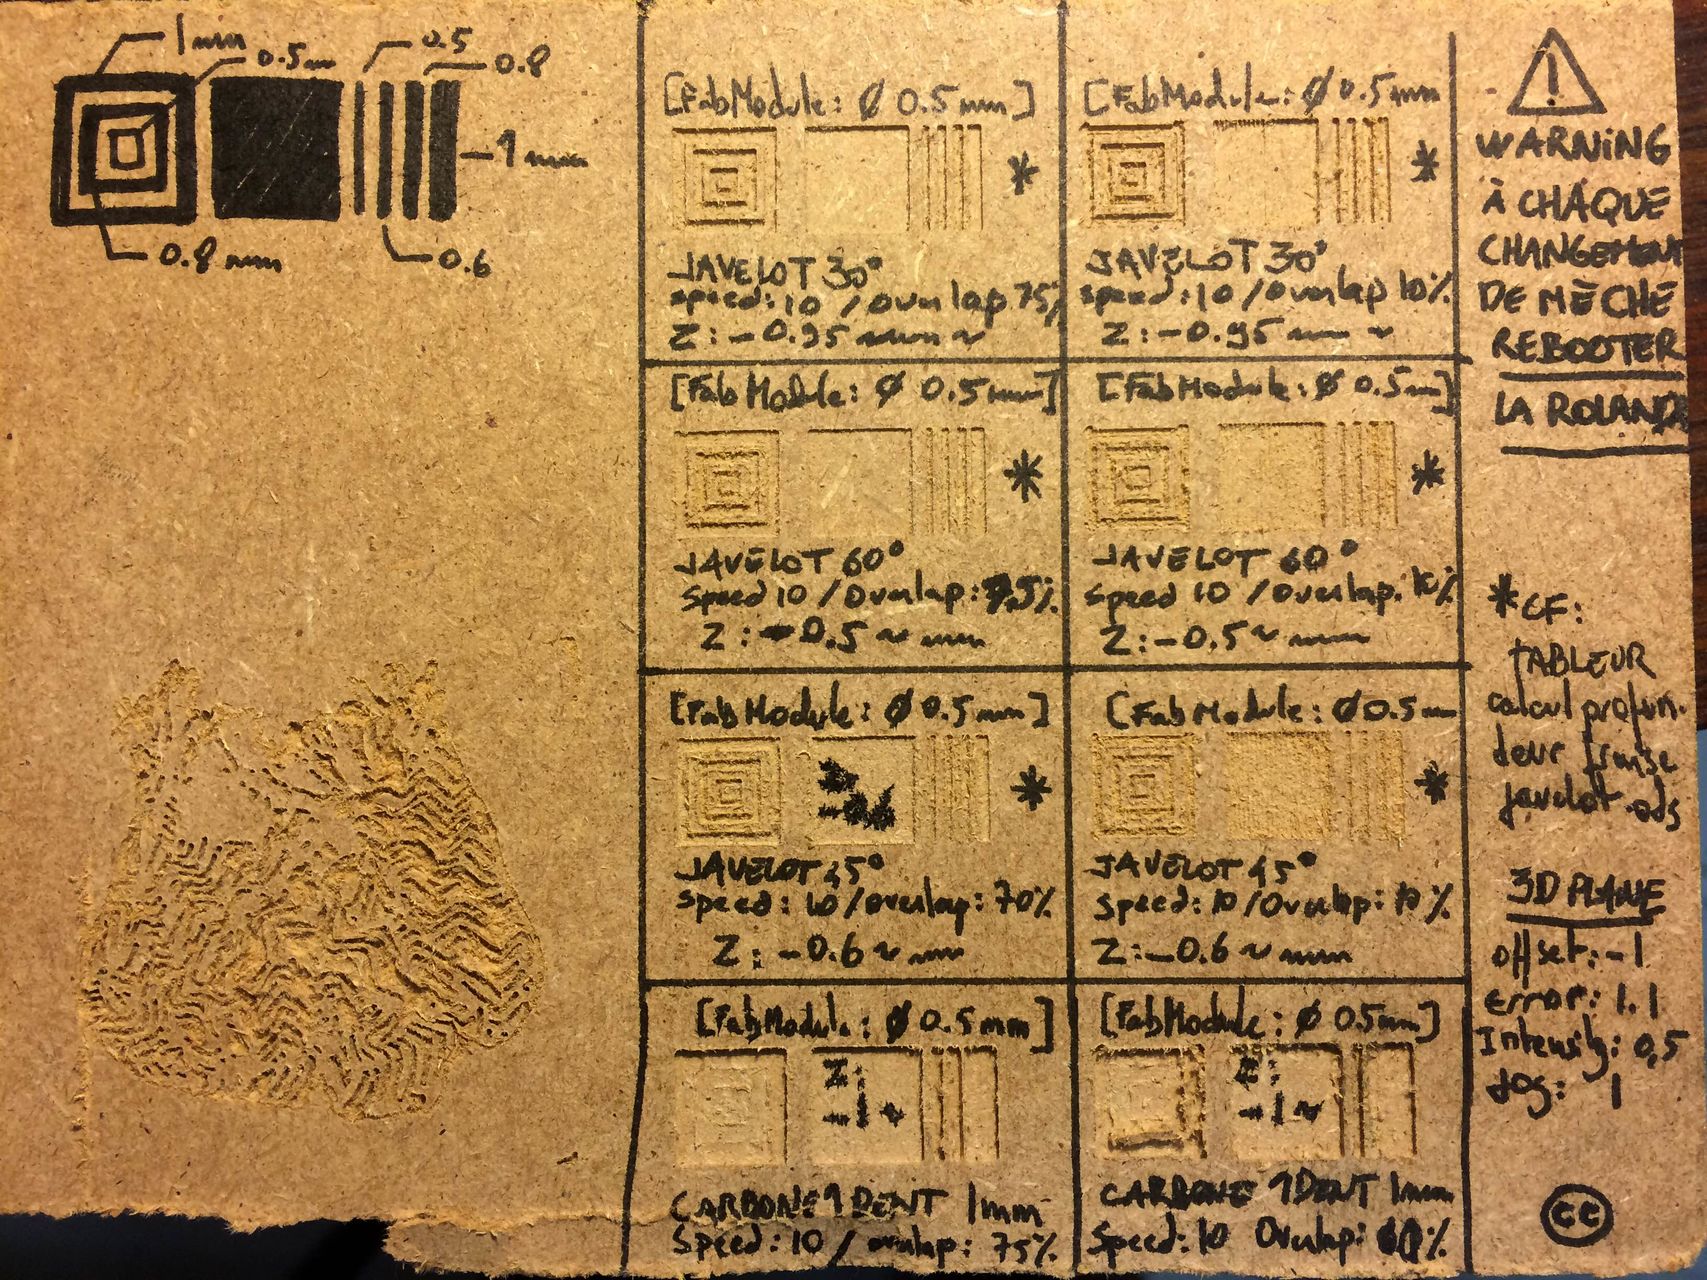 1mm
0.5mm
0.5
0.8
1mm
0.8mm
0.6
[FabModule: Ø 0.5mm]
*
JAVELOT 30°
speed: 10 / Overlap 75%
Z: -0.95 mm ~
[FabModule: Ø 0.5mm
*
JAVELOT 30°
speed: 10 / Overlap 10%
Z: -0.95 mm ~
[FabModule: Ø 0.5mm]
*
JAVELOT 60°
Speed 10 / Overlap:
Z: -0.5 ~ mm
[FabModule: Ø 0.5m]
*
JAVELOT 60°
Speed 10 / Overlap: 10%
Z: -0.5 ~ mm
[FabModule: Ø 0.5mm]
*
JAVELOT 45°
Speed: 10 / Overlap: 70%
Z: -0.6 ~ mm
[FabModule: Ø 0.5m
*
JAVELOT 45°
Speed: 10 / Overlap: 10%
Z: -0.6 ~ mm
[FabModule: Ø 0.5mm]
Z:
-1 ~
CARBONE 1DENT 1mm
Speed: 10 / overlap: 75%
[FabModule: Ø 0.5mm]
Z:
-1 ~
CARBONE 1DENT 1mm
Speed: 10 Overlap:
!
WARNING
À CHAQUE
CHANGEMENT
DE MÈCHE
REBOOTER
LA ROLAND
*CF:
TABLEUR
calcul profon-
deur fraise
javelot.ods
3D PLANE
offset: -1
error: 1.1
Intensity: 0,5
Jog: 1
cc